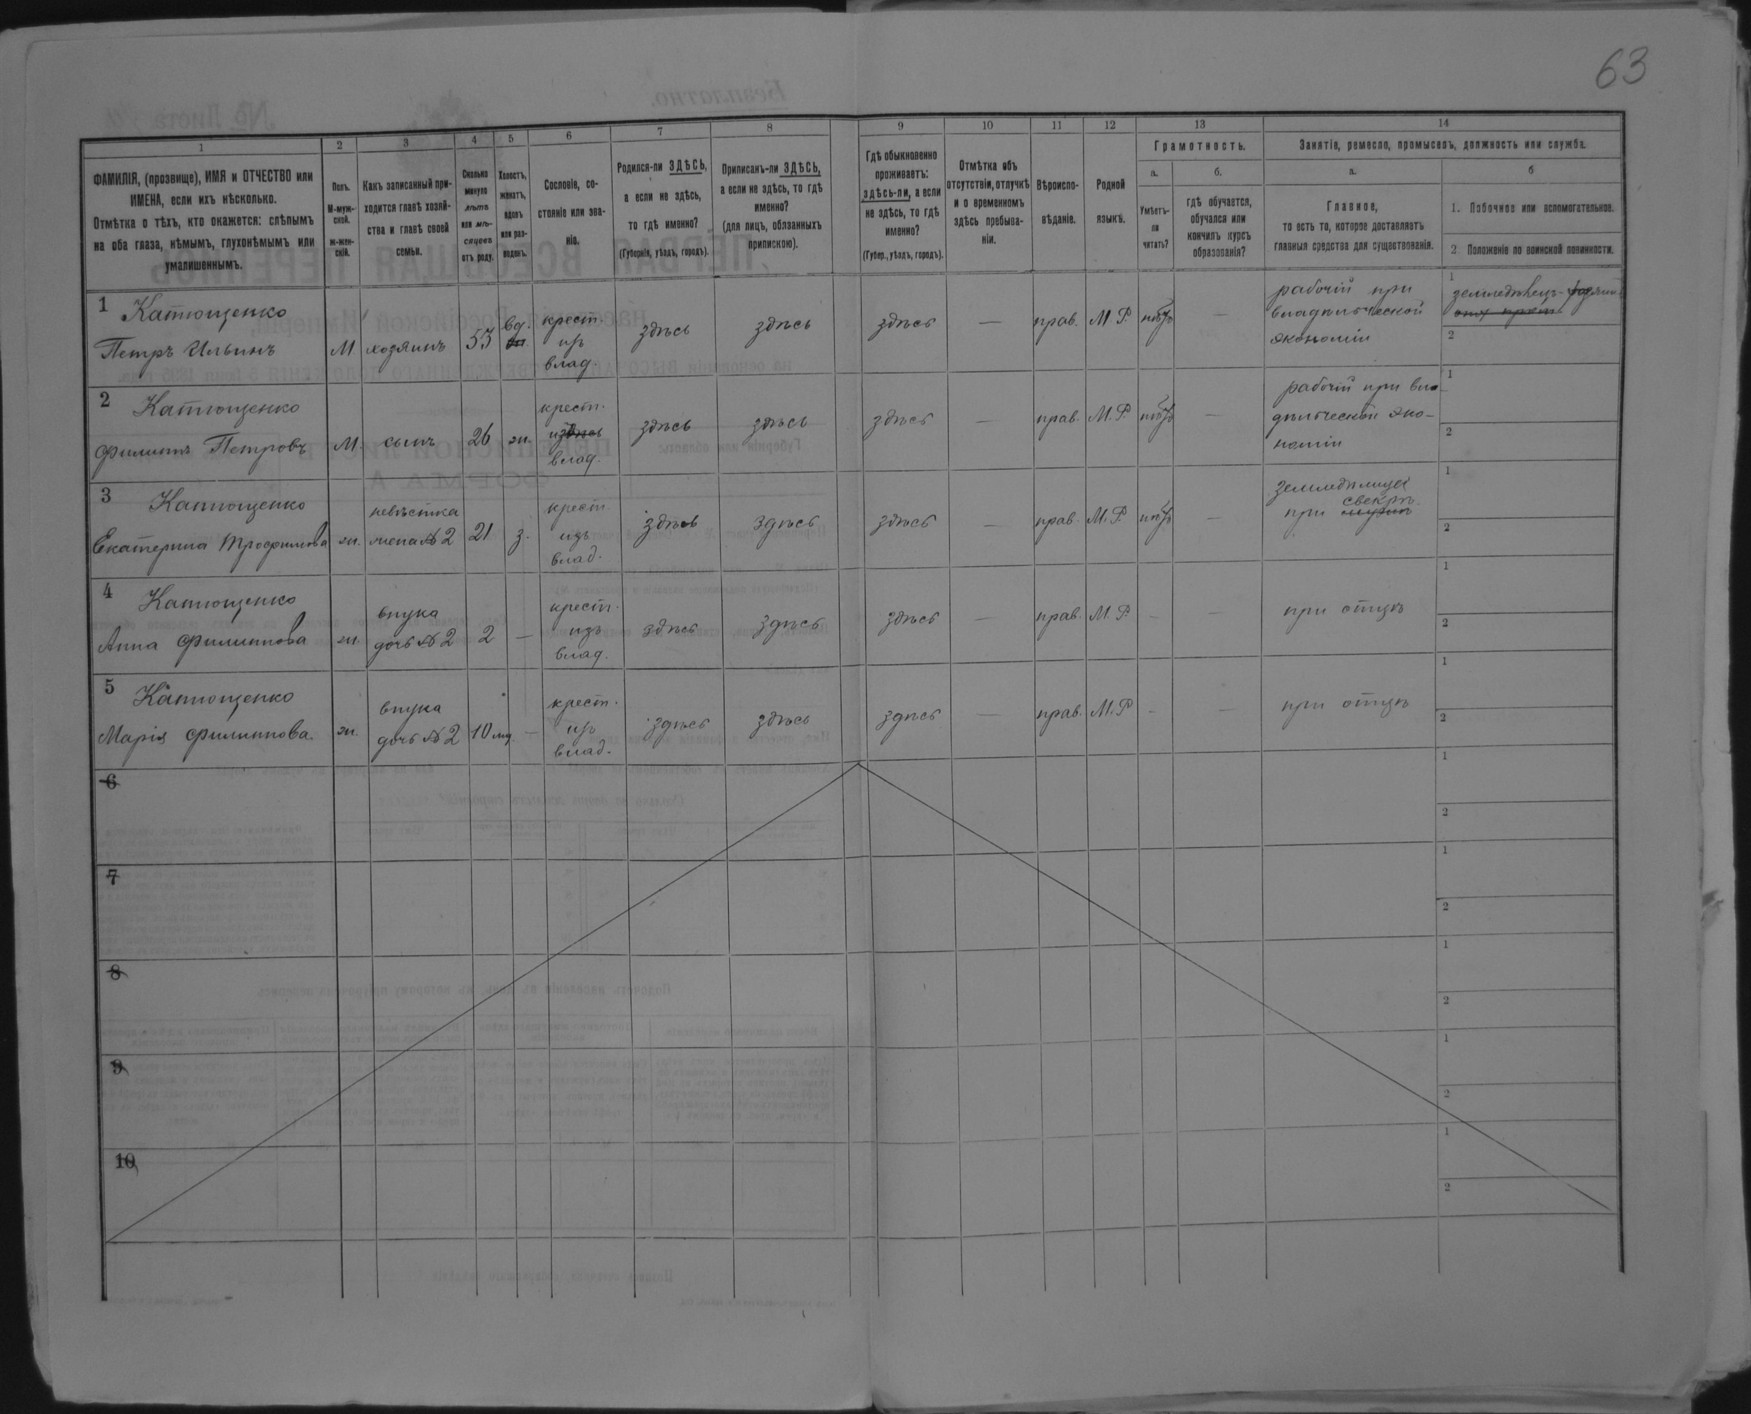 63
1
2
3
4
5
6
7
8
9
10
11
12
13
14
ФАМИЛІЯ, (прозвище), ИМЯ и ОТЧЕСТВО или
ИМЕНА, если ихъ нѣсколько.
Отмѣтка о тѣхъ, кто окажется: слѣпымъ
на оба глаза, нѣмымъ, глухонѣмымъ или
умалишеннымъ.
Полъ.
М-муж-
ской.
Ж-жен-
скій.
Какъ записанный при-
ходится главѣ хозяй-
ства и главѣ своей
семьи.
Сколько
минуло
лѣтъ
или мѣ-
сяцевъ
отъ роду.
Холостъ,
женатъ,
вдовъ
или раз-
веденъ.
Сословіе, со-
стояніе или зва-
ніе.
Родился-ли ЗДѢСЬ,
а если не здѣсь,
то гдѣ именно?
(Губернія, уѣздъ, городъ).
Приписанъ-ли ЗДѢСЬ,
а если не здѣсь, то гдѣ
именно?
(для лицъ, обязанныхъ
припискою).
Гдѣ обыкновенно
проживаетъ:
здѣсь-ли, а если
не здѣсь, то гдѣ
именно?
(Губер., уѣздъ, городъ).
Отмѣтка объ
отсутствіи, отлучкѣ
и о временномъ
здѣсь пребыва-
ніи.
Вѣроиспо-
вѣданіе.
Родной
языкъ.
Грамотность.
а.
Умѣетъ-
ли
читать?
б.
гдѣ обучается,
обучался или
кончилъ курсъ
образованія?
Занятіе, ремесло, промыселъ, должность или служба.
а.
Главное,
то есть то, которое доставляетъ
главныя средства для существованія.
б
1. Побочное или вспомогательное.
2 Положеніе по воинской повинности.
1 Катющенко
Петръ Ильинъ
М
хозяинъ
53
вд.
крест.
изъ
влад.
здѣсь
здѣсь
здѣсь
—
прав.
М.Р.
нѣтъ
—
рабочій при
владѣльческой
экономіи
1
земледѣлецъ - хозяинъ
2
2 Катющенко
Филиппъ Петровъ
М.
сынъ
26
ж.
крест.
изъ
влад.
здѣсь
здѣсь
здѣсь
—
прав.
М.Р.
нѣтъ
—
рабочій при вла
дѣльческой эко-
номіи
1
2
3 Катющенко
Екатерина Трофимова
ж.
невѣстка
жена № 2
21
з.
крест.
изъ
влад.
здѣсь
здѣсь
здѣсь
—
прав.
М.Р.
нѣтъ
—
земледѣлица
свекрѣ
при мужѣ
1
2
4 Катющенко
Анна Филиппова
ж.
внука
дочь № 2
2
—
крест.
изъ
влад.
здѣсь
здѣсь
здѣсь
—
прав.
М.Р.
-
—
при отцѣ
1
2
5 Катющенко
Марія Филиппова.
ж.
внука
дочь № 2
10 мц.
—
крест.
изъ
влад.
здѣсь
здѣсь
здѣсь
—
прав.
М.Р
-
—
при отцѣ
1
2
6
1
2
7
1
2
8
1
2
9
1
2
10
1
2